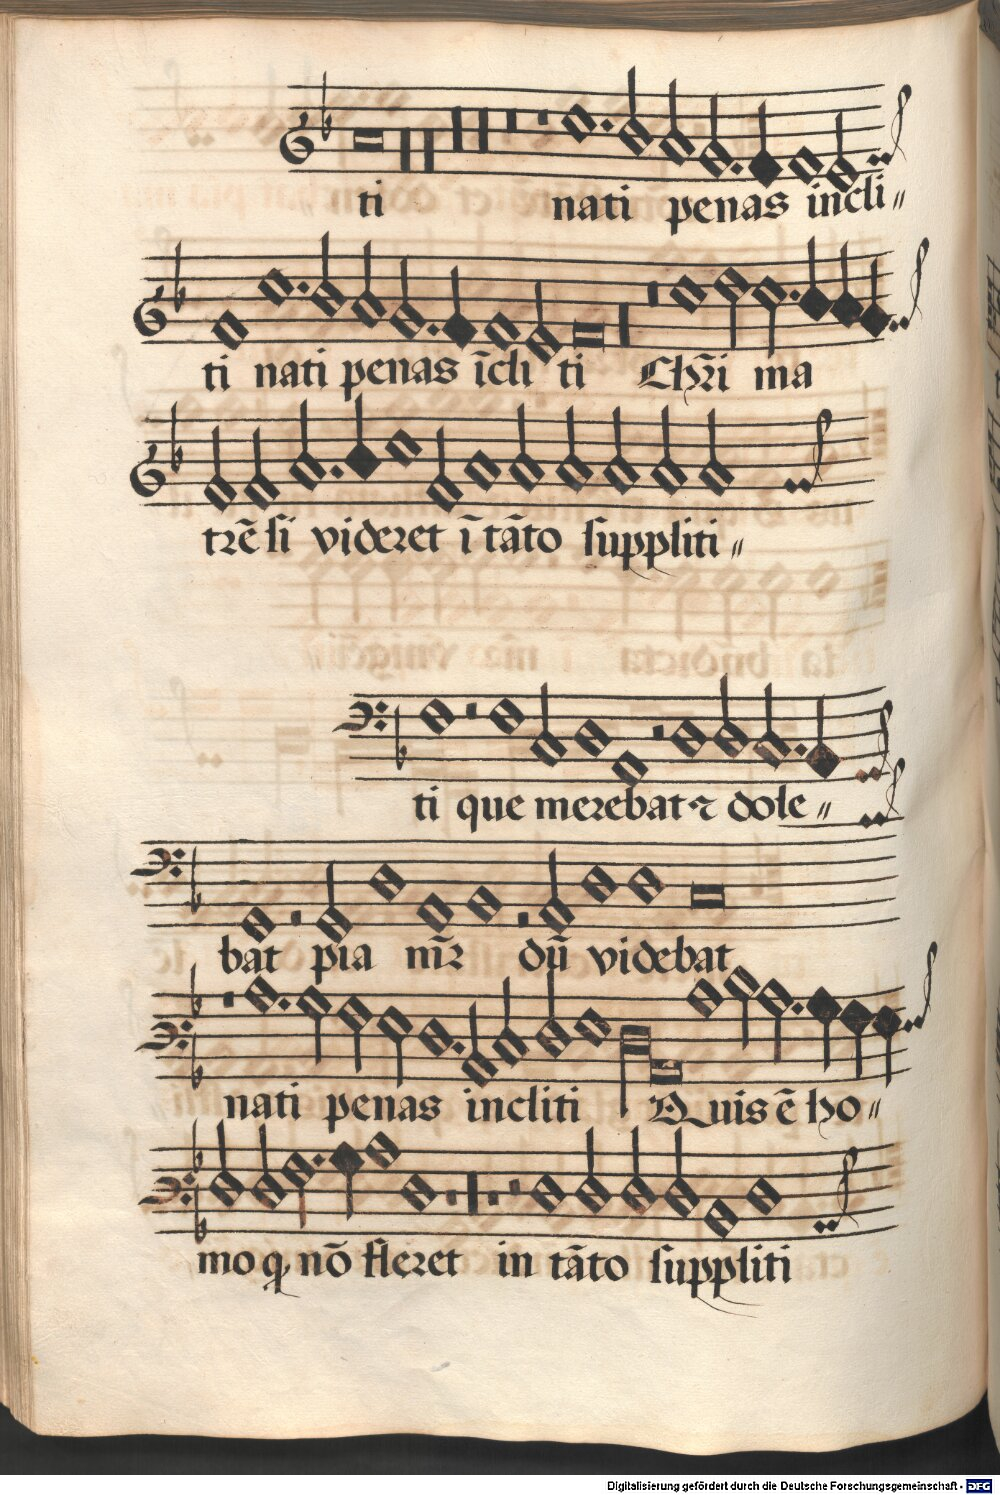 ti nati penas incli〃
ti nati penas īcli ti Chr̄i ma
trē si videret ī tāto suppliti〃
ti que merebat ⁊ dole〃
bat pia mr̄ dū videbat
nati penas incliti Quis ē ho〃
mo q nō fleret in tāto suppliti
Digitalisierung gefördert durch die Deutsche Forschungsgemeinschaft - DFG